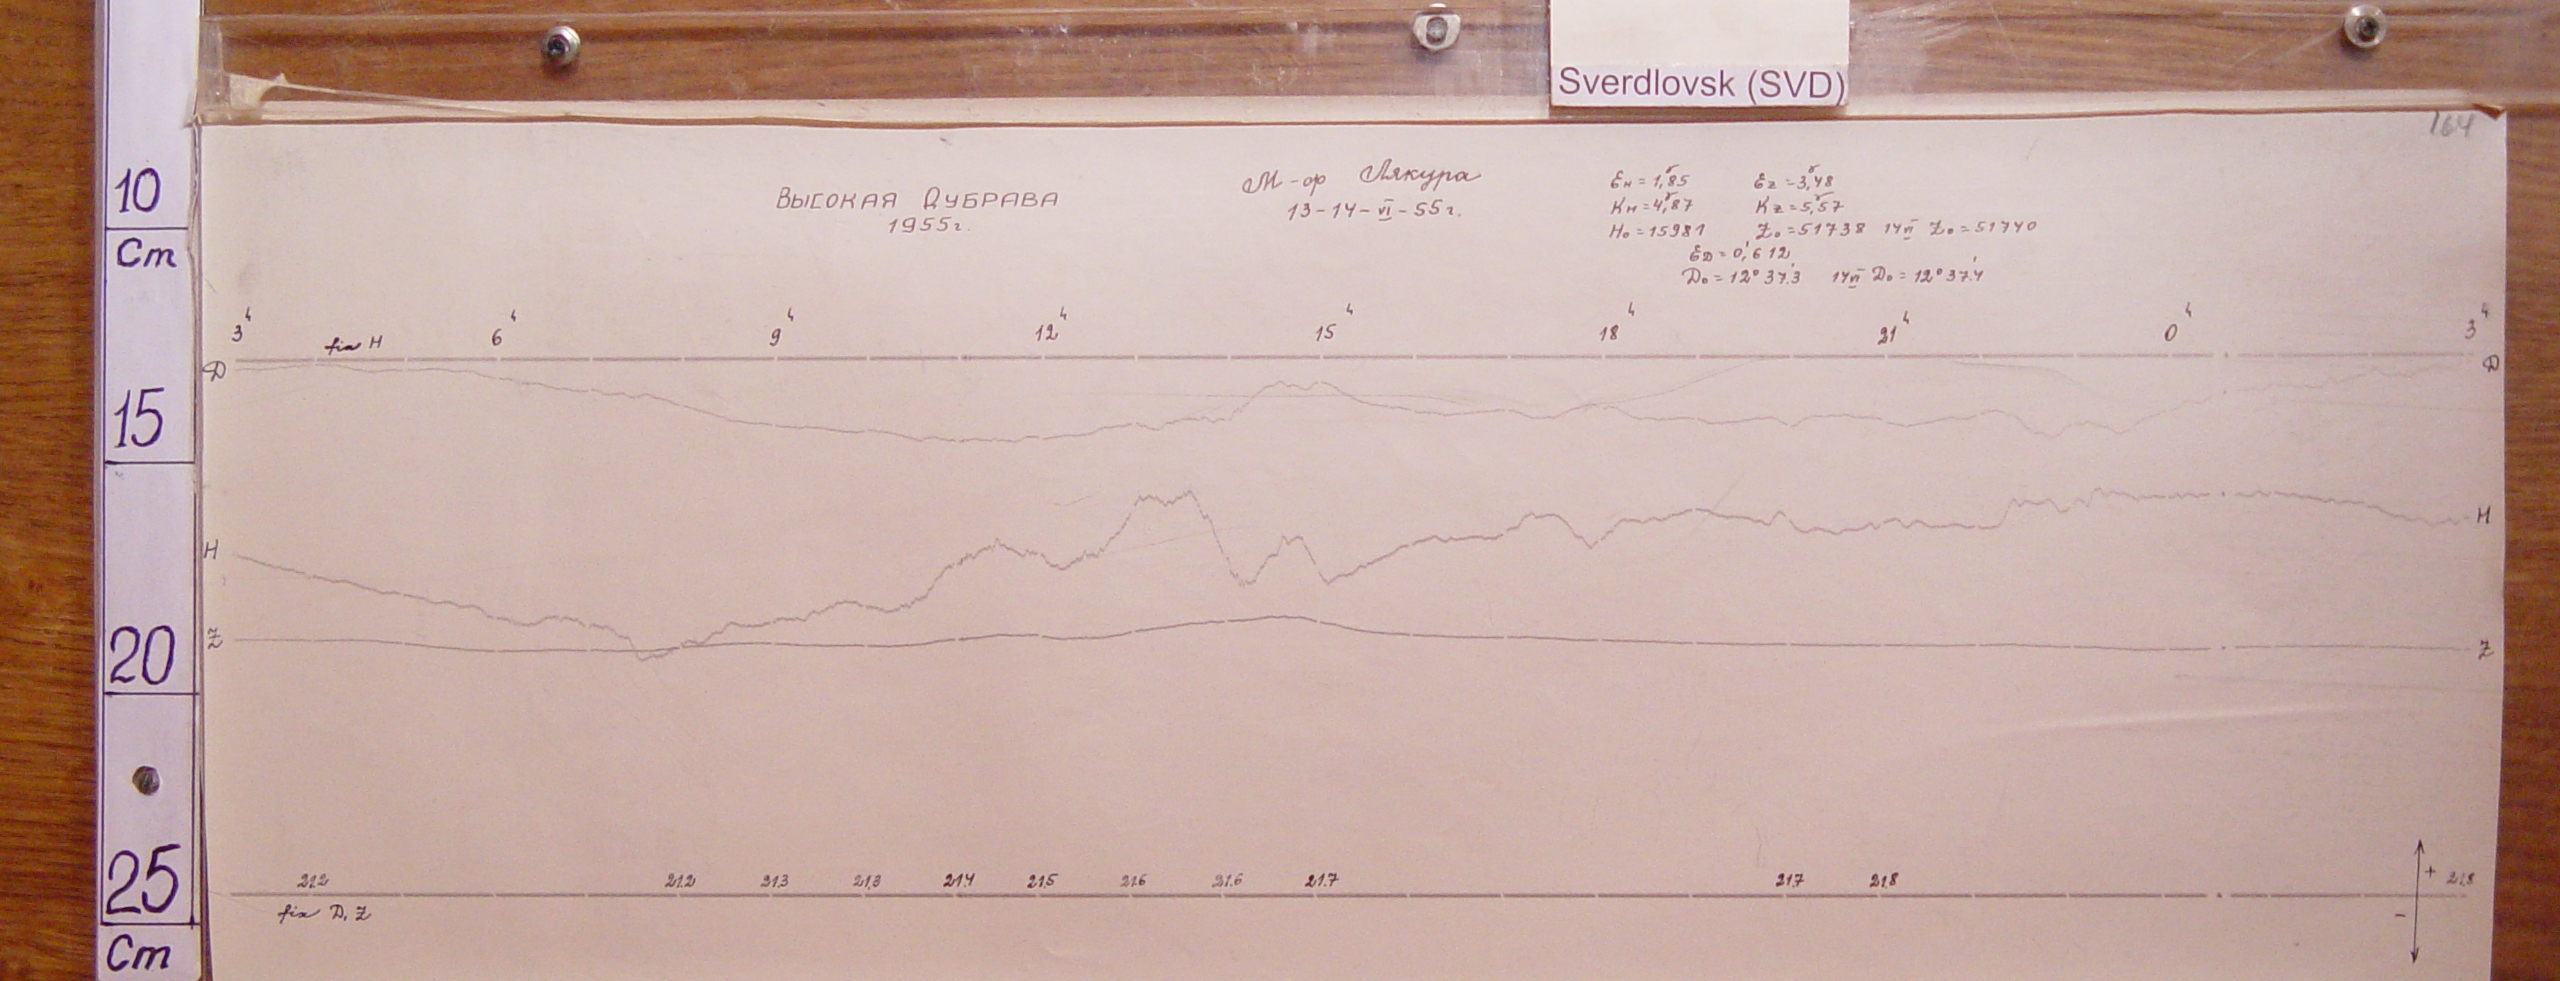 Sverdlovsk (SVD)
164
10
Cm
15
20
25
Cm
Высокая Дубрава
1955г.
М-ф Лякура
13-14-VI-55г.
Ɛн = 1,85 Ɛz = 3,48
Kн = 4,87 Kz = 5,57
H₀ = 15981 Z₀ = 51738 14VI Z₀ = 51740
ƐD = 0,612
D₀ = 12° 37.3 14VI D₀ = 12° 37.4
3ч 6ч 9ч 12ч 15ч 18ч 21ч 0ч 3ч
fix H
D D
H H
Z Z
21.2 21.2 21.3 21.3 21.4 21.5 21.6 21.6 21.7 21.7 21.8 + 21.8
fix D, Z -